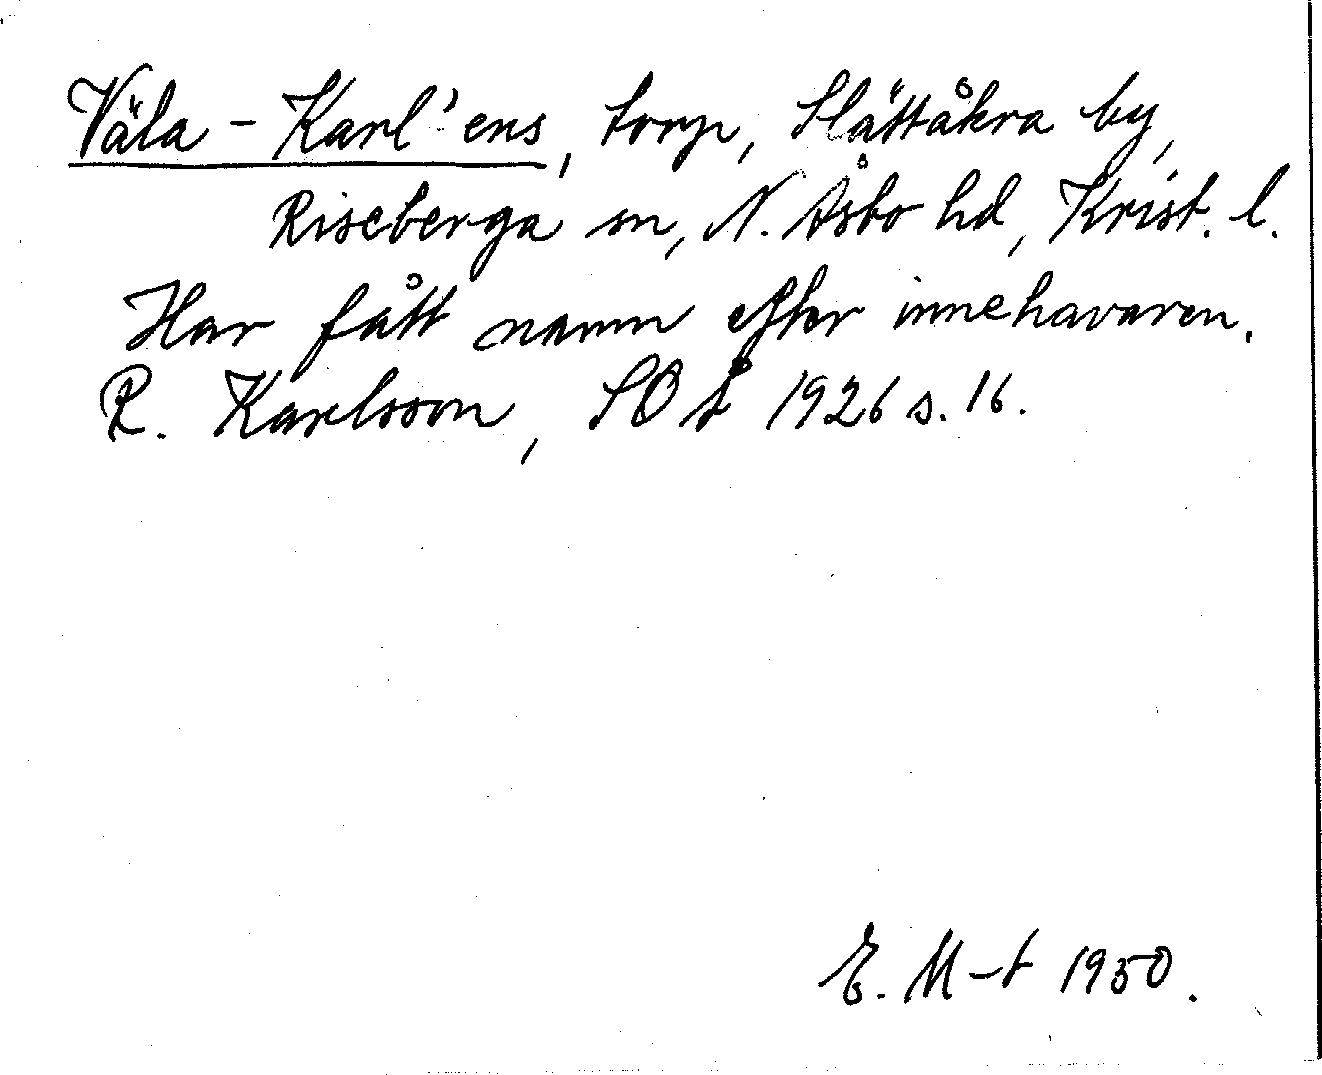 Väla-Karl'ens, torp, Slättåkra by,
Riseberga sn, N. Åsbo hd, Krist. l.
Har fått namn efter innehavaren.
R. Karlsson, SOÅ 1926 s. 16.
E. M-t 1950.